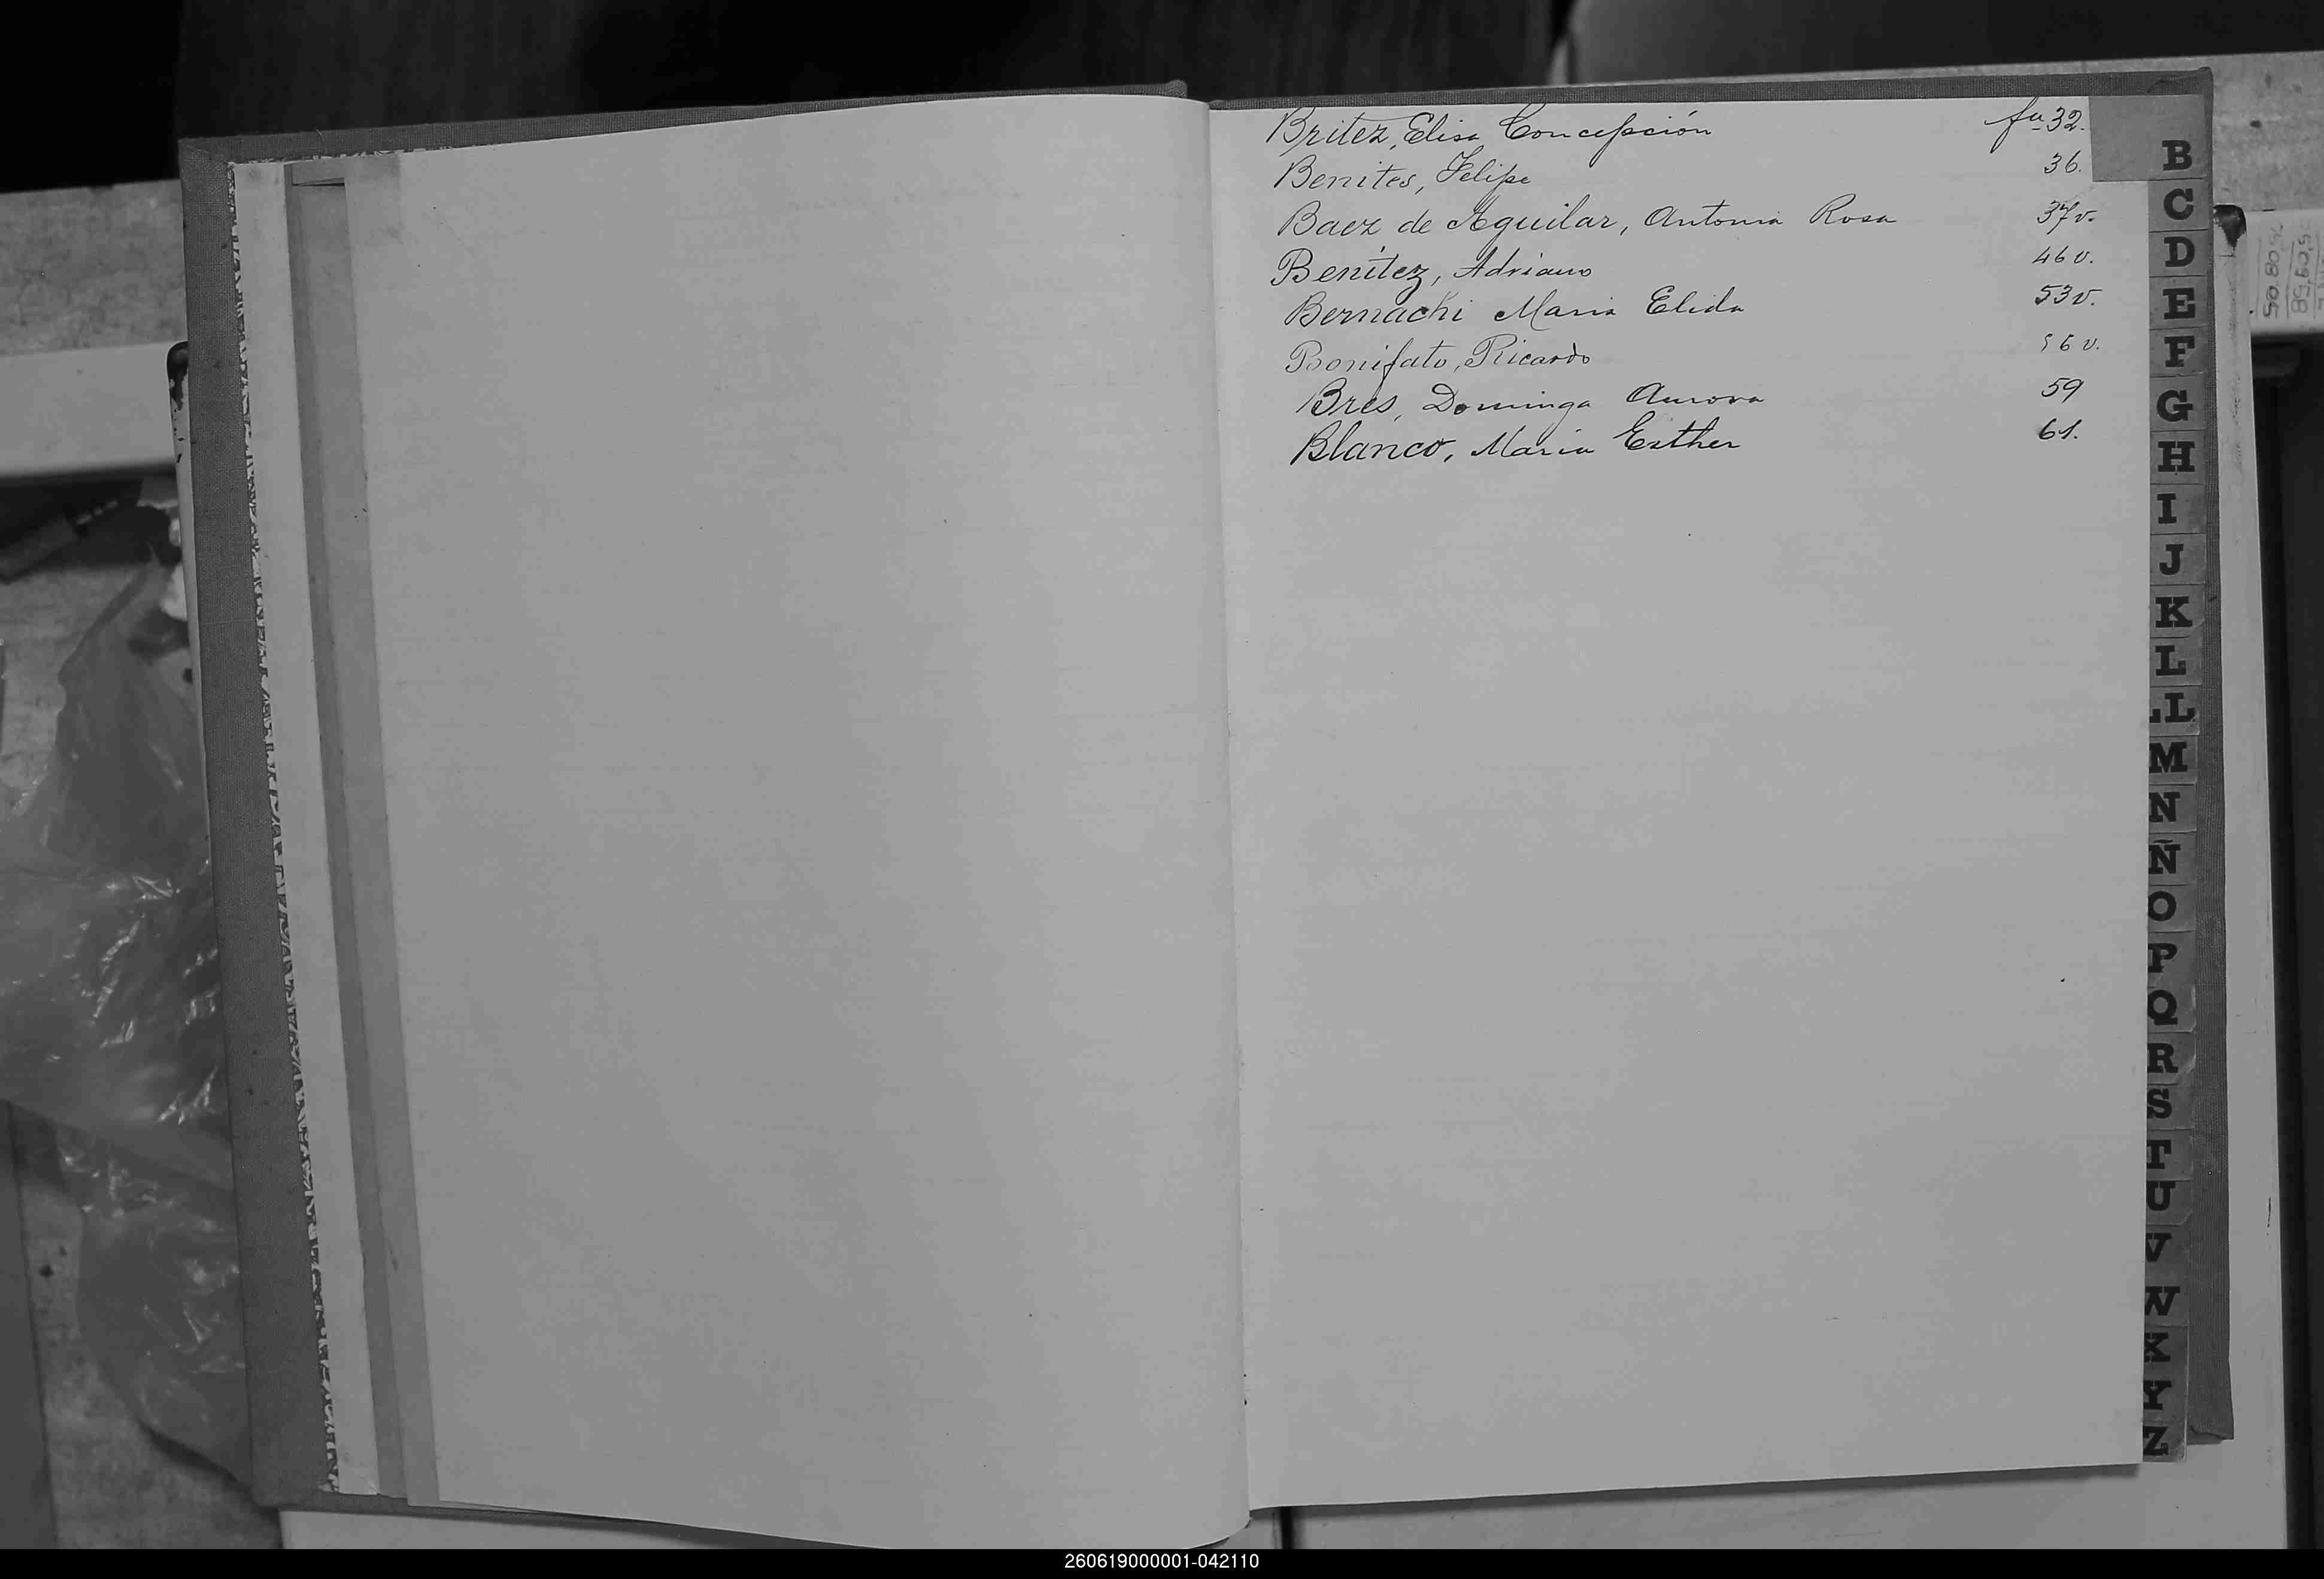 Britez, Elisa Concepción fu 32.
Benites, Felipe 36.
Baez de Aguilar, Antonia Rosa 37v.
Benítez, Adriano 46v.
Bernachi Maria Elida 53v.
Bonifato, Ricardo 56v.
Bres, Dominga Aurora 59
Blanco, Maria Esther 61.
B
C
D
E
F
G
H
I
J
K
L
LL
M
N
Ñ
O
P
Q
R
S
T
U
V
W
X
Y
Z
260619000001-042110